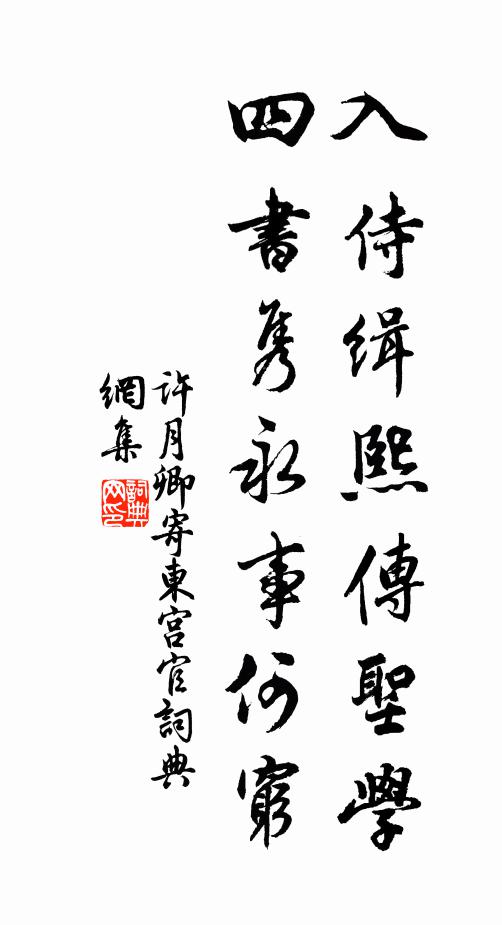 入侍緝熙傳聖學
四書雋永事何窮
許月卿寄東宮官詞典
網集
詞典網印